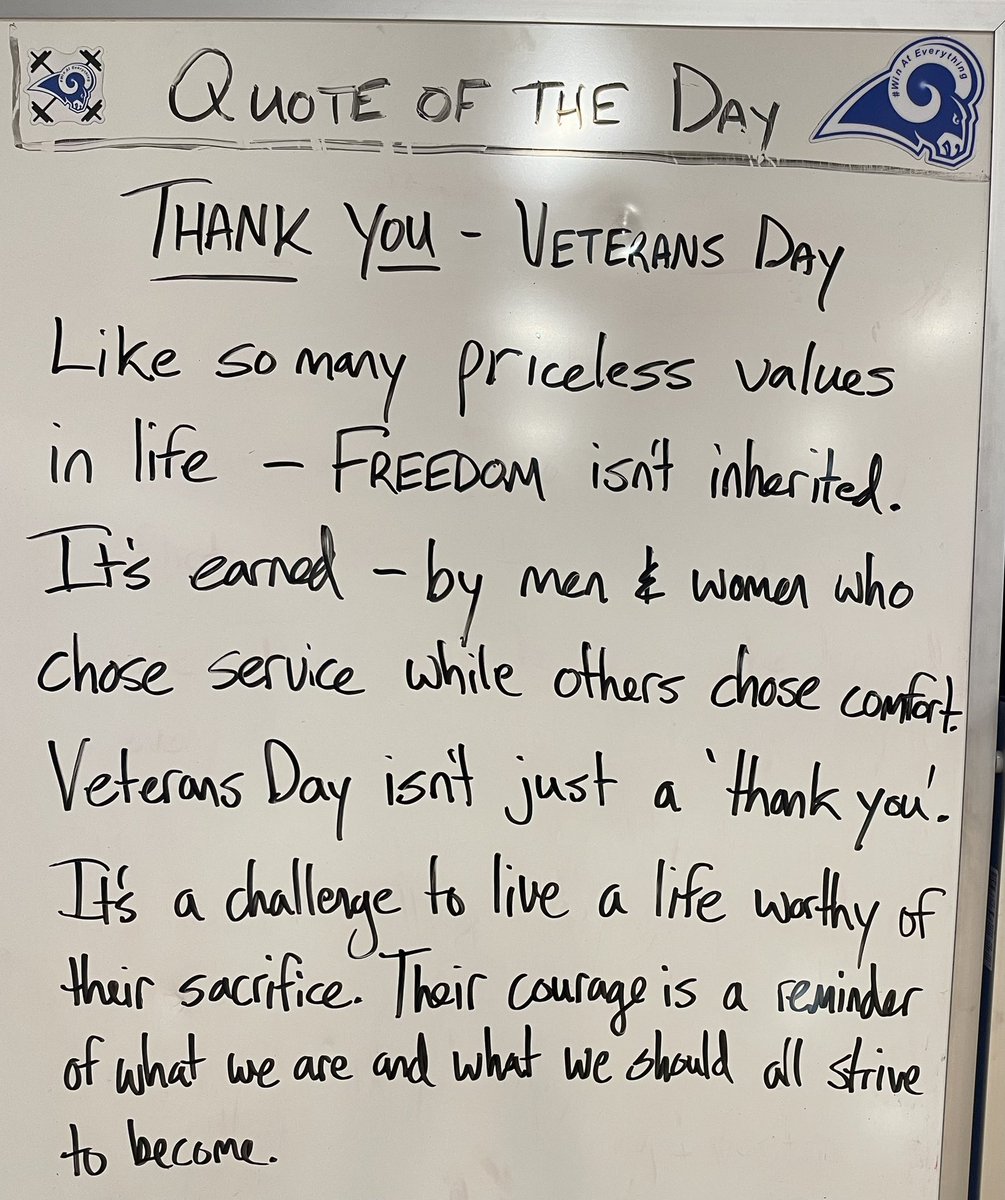 QUOTE OF THE DAY
#Win At Everything
THANK YOU - VETERANS DAY
Like so many priceless values
in life - FREEDOM isn't inherited.
It's earned - by men & women who
chose service while others chose comfort.
Veterans Day isn't just a 'thank you'.
It's a challenge to live a life worthy of
their sacrifice. Their courage is a reminder
of what we are and what we should all strive
to become.